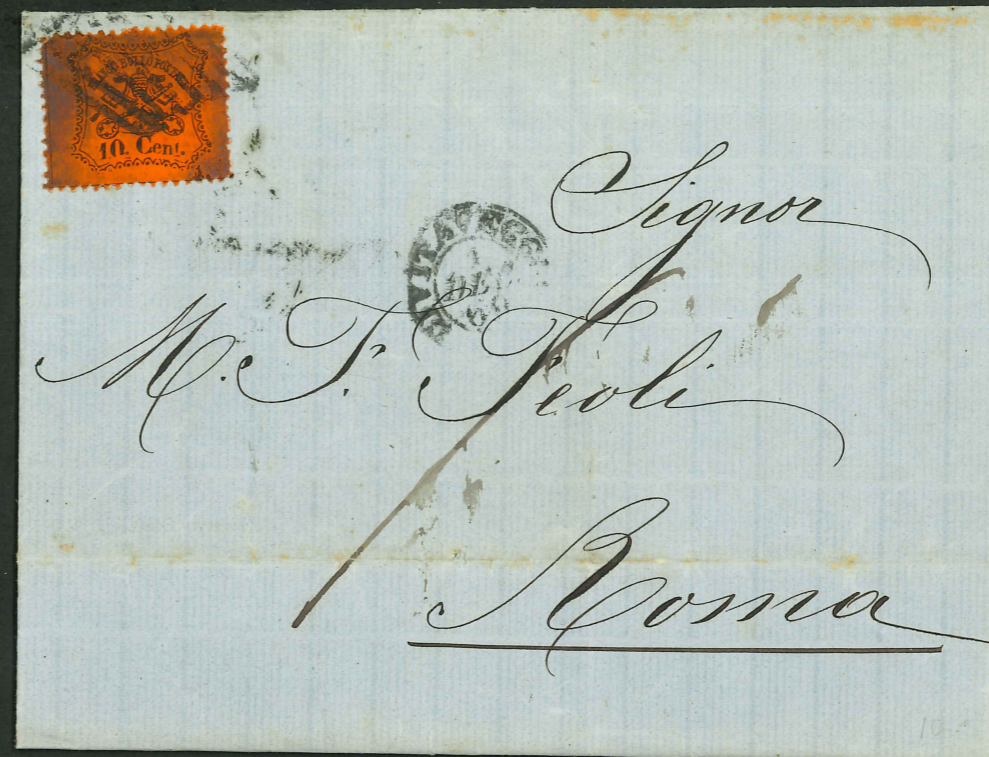 10. Cent.
Signor
M. F. Feoli
Roma
10